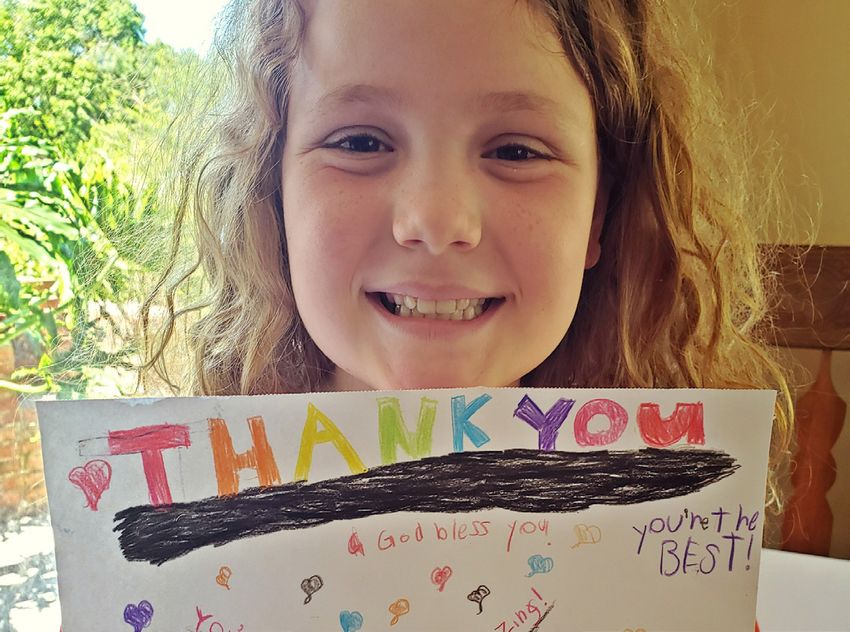 THANK YOU
God bless you
you're the
BEST!
You
zing!